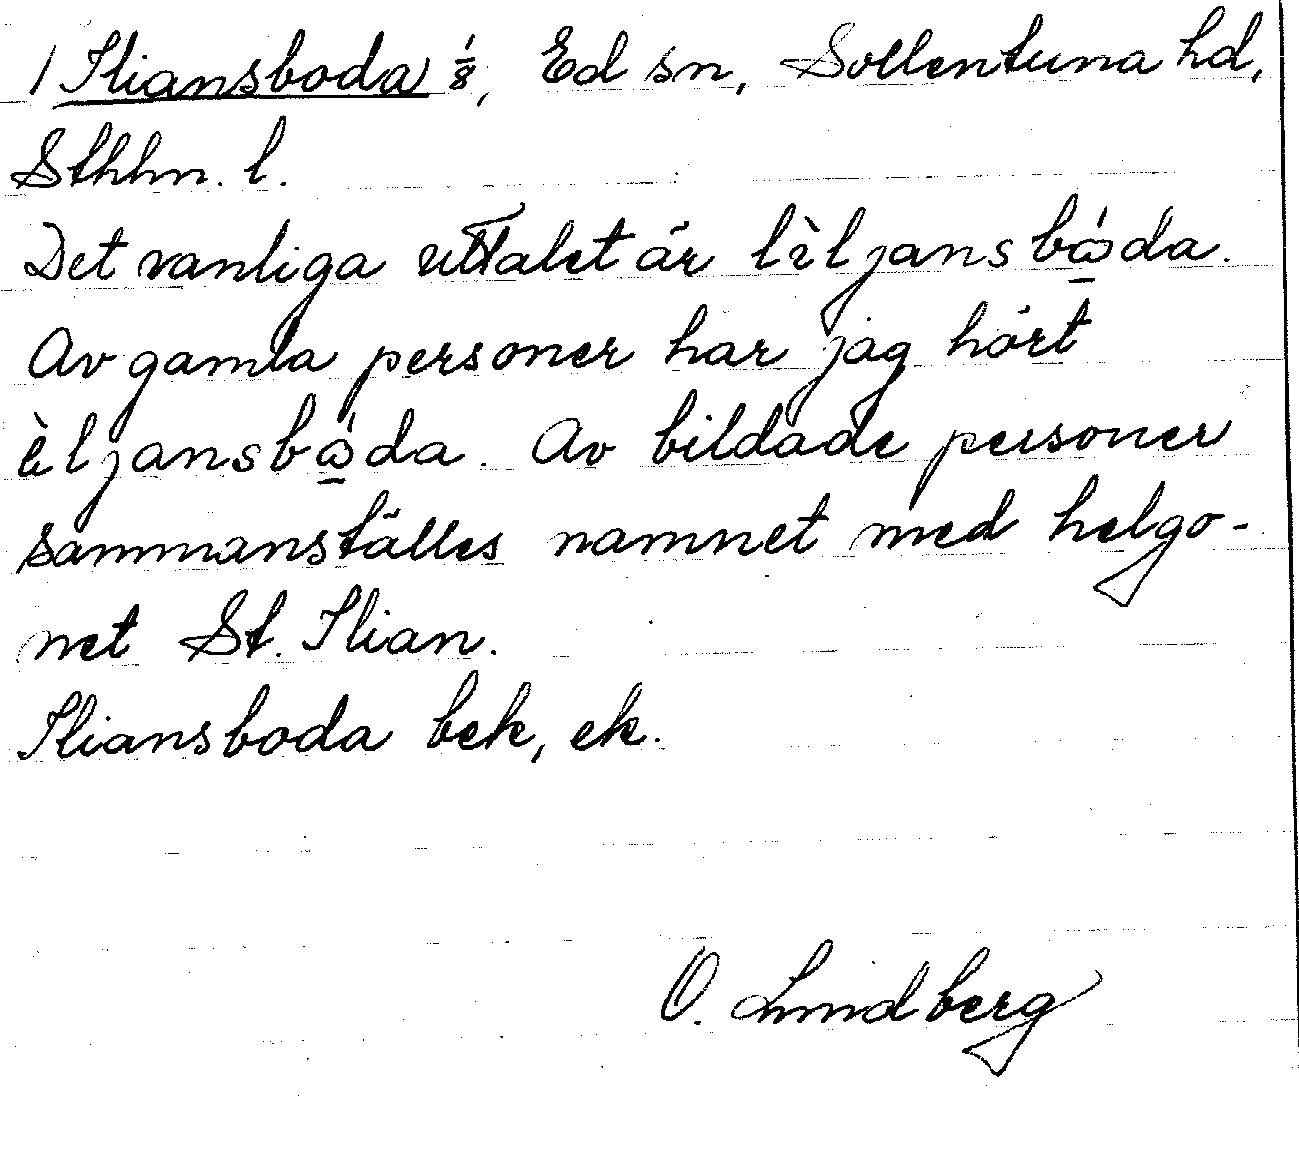 1 Iliansboda 1/8, Ed sn, Sollentuna hd,
Sthhn. l.
Det vanliga uttalet är lìljansbǻda.
Av gamla personer har jag hört
èljansbǻda. Av bildade personer
sammanställes namnet med helgo-
net St. Ilian.
Iliansboda bek, ek.
O. Lundberg